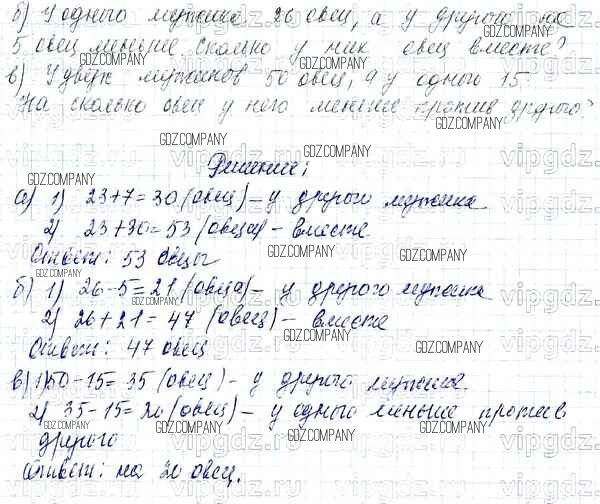 б) У одного мужика 26 овец, а у другого на
5 овец меньше. Сколько у них овец вместе?
в) У двух мужиков 50 овец, а у одного 15.
На сколько овец у него меньше против другого?
Решение:
а) 1) 23+7=30 (овец) – у другого мужика
2) 23+30=53 (овцы) – вместе.
Ответ: 53 овцы
б) 1) 26-5=21 (овца) – у другого мужика
2) 26+21=47 (овец) – вместе
Ответ: 47 овец
в) 1) 50-15=35 (овец) – у другого мужика.
2) 35-15=20 (овец) – у одного меньше против
другого
Ответ: на 20 овец.